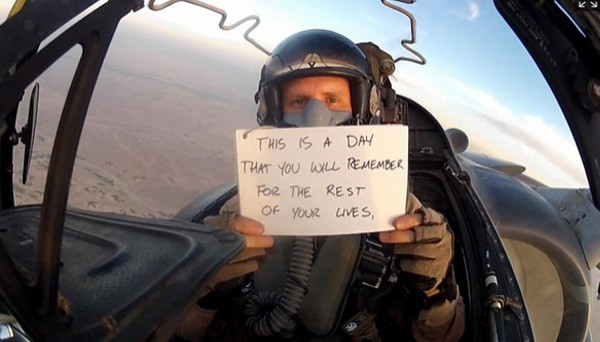 THIS IS A DAY
THAT YOU WILL REMEMBER
FOR THE REST
OF YOUR LIVES,